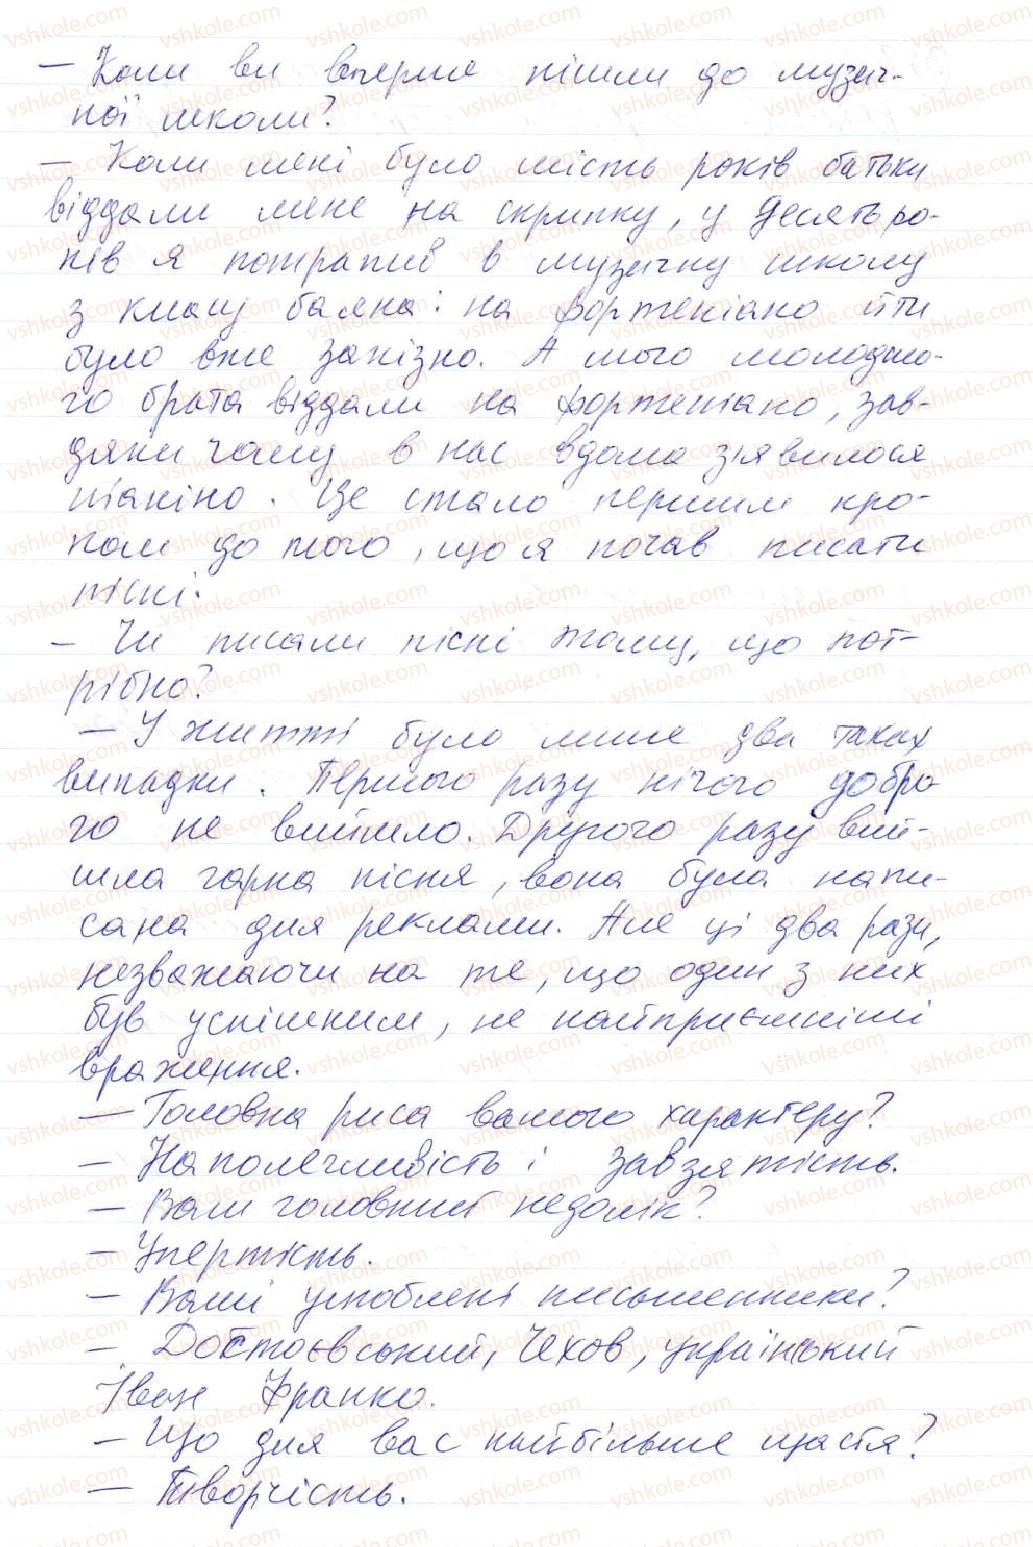 — Коли ви вперше пішли до музич-
ної школи?
— Коли мені було шість років батьки
віддали мене на скрипку, у десять ро-
ків я потрапив в музичну школу
з класу баяна: на фортепіано йти
було вже запізно. А мого молодшо-
го брата віддали на фортепіано, зав-
дяки чому в нас вдома з'явилося
піаніно. Це стало першим кро-
ком до того, що я почав писати
пісні.
— Чи писали пісні тому, що пот-
рібно?
— У житті було лише два таких
випадки. Першого разу нічого добро-
го не вийшло. Другого разу вий-
шла гарна пісня, вона була напи-
сана для реклами. Але ці два рази,
незважаючи на те, що один з них
був успішним, не найприємніші
враження.
— Головна риса вашого характеру?
— Наполегливість і завзятість.
— Ваш головний недолік?
— Упертість.
— Ваші улюблені письменники?
— Достоєвський, Чехов, український
Іван Франко.
— Що для вас найбільше щастя?
— Творчість.